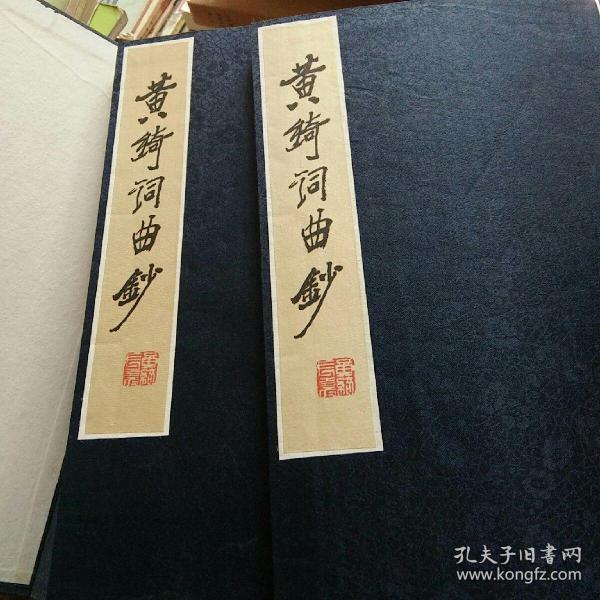 黄绮词曲鈔
黄绮词曲鈔
孔夫子旧書网
www.kongfz.com